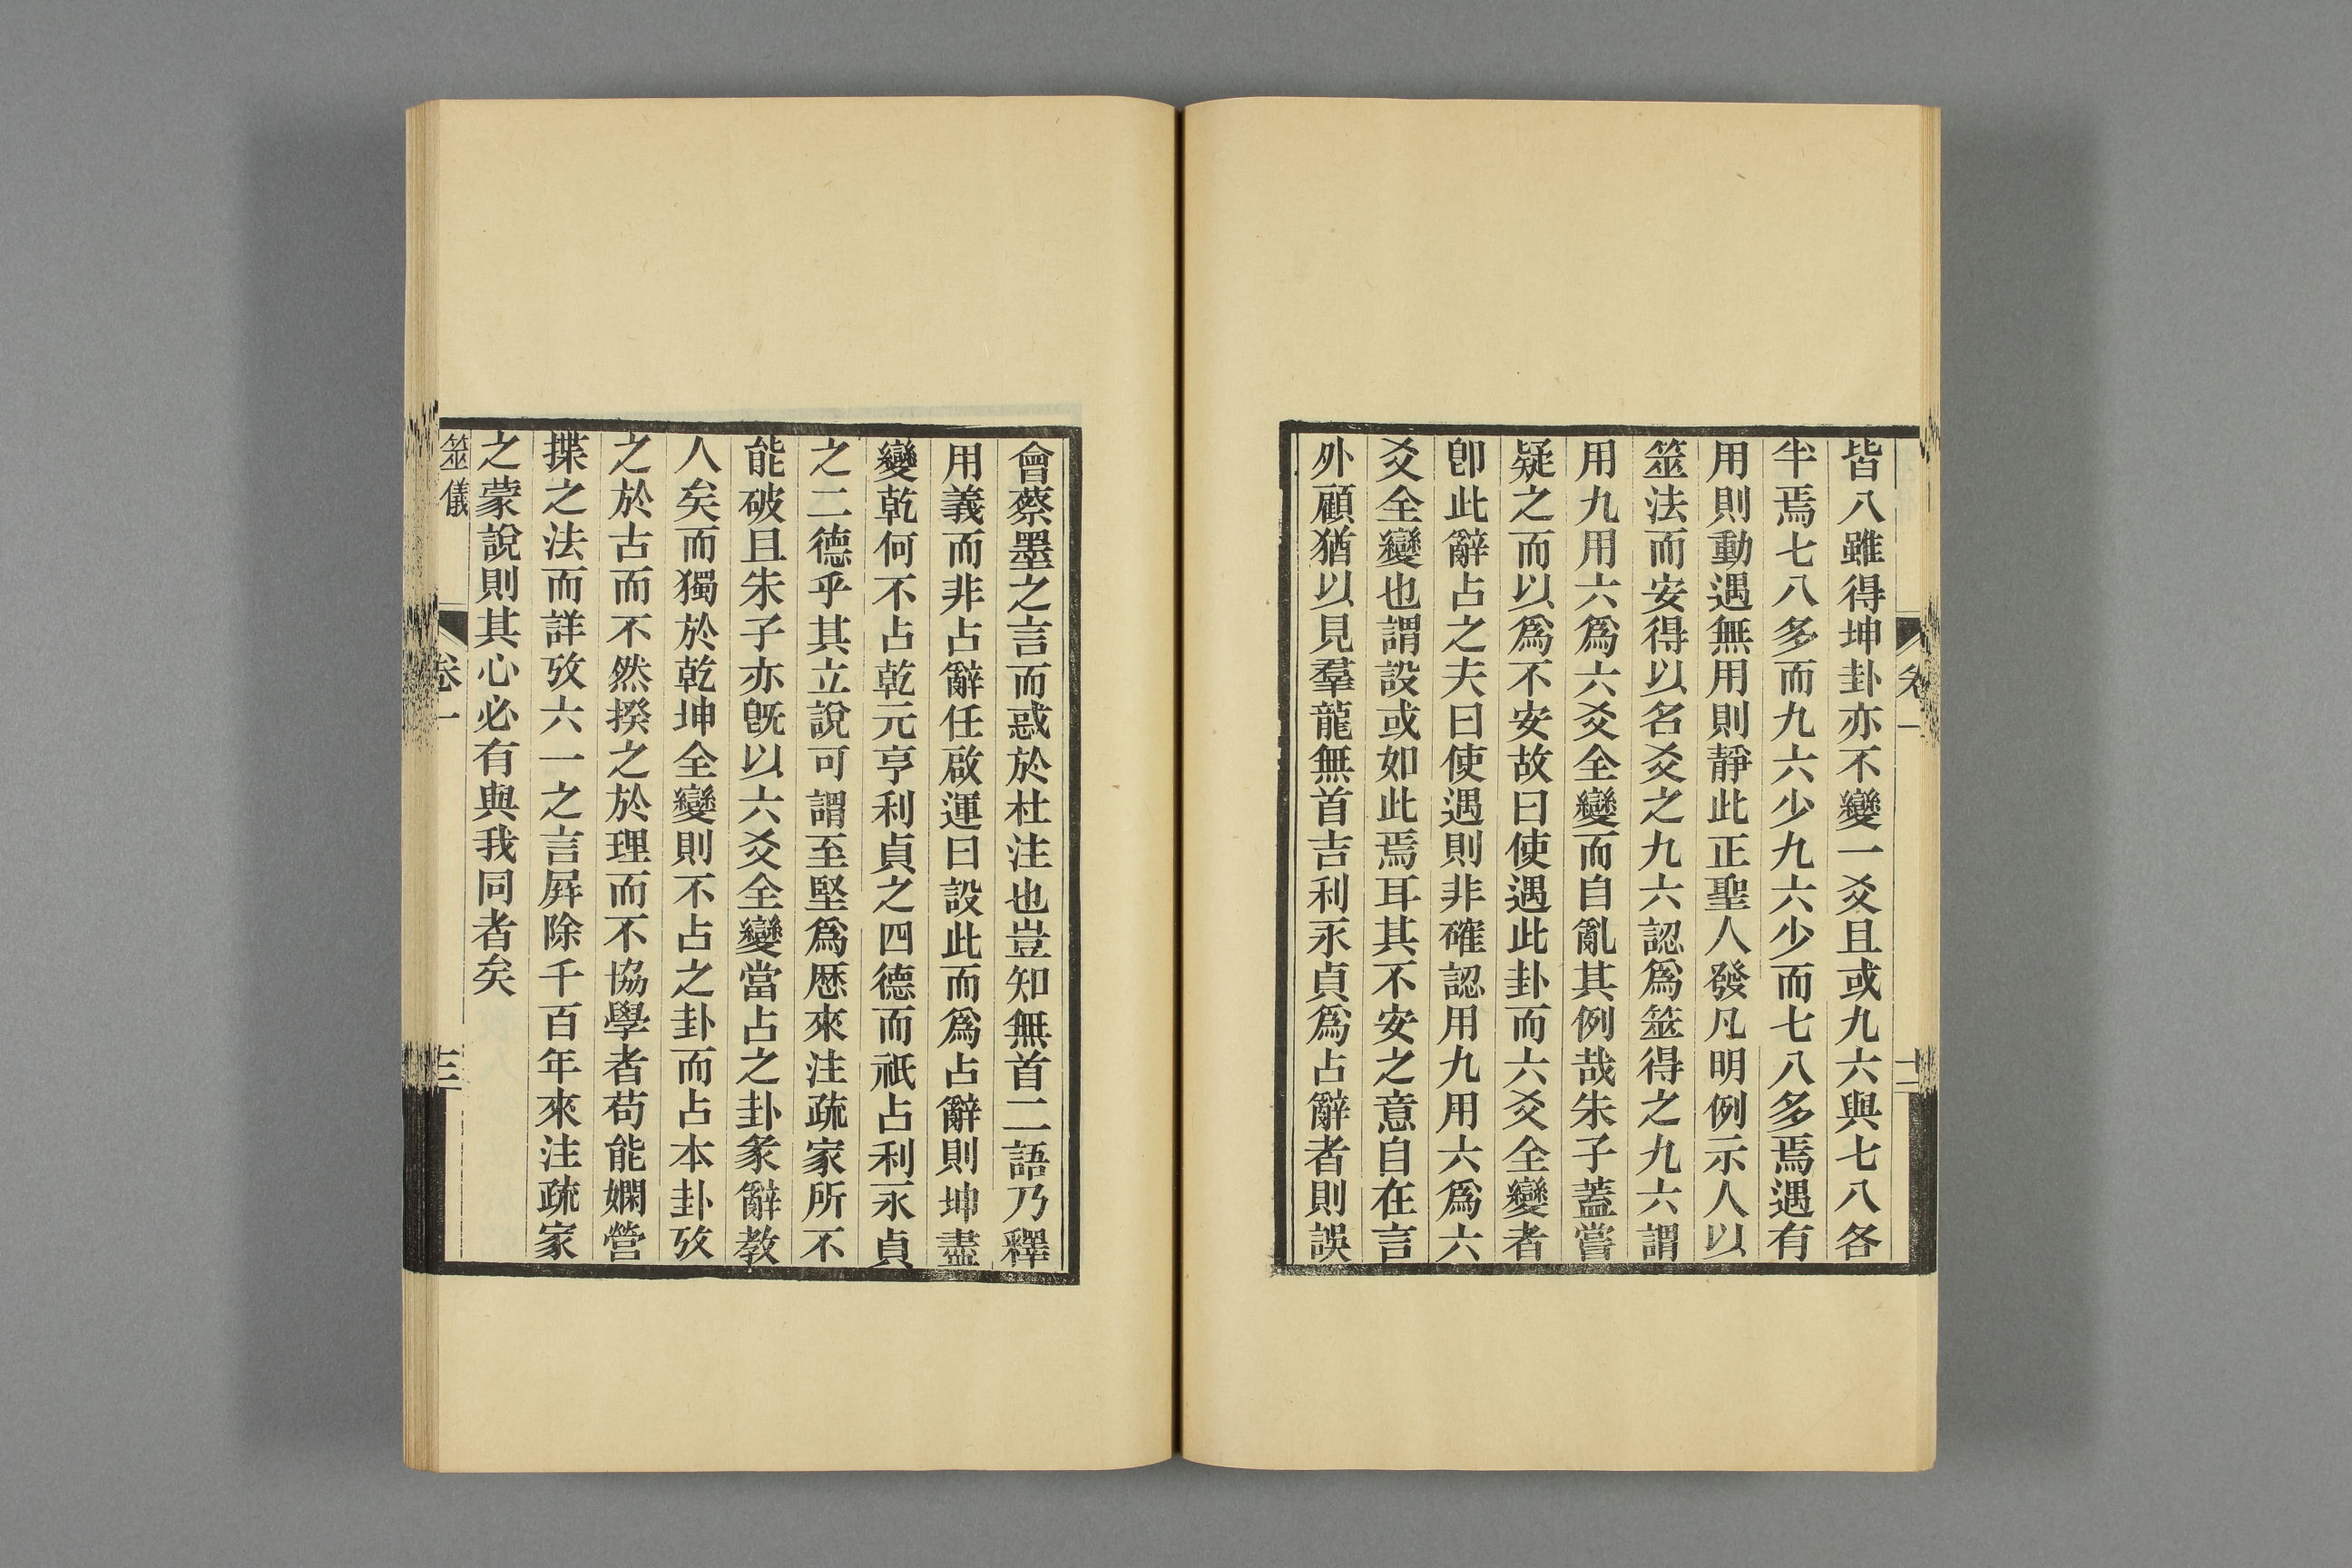 皆八雖得坤卦亦不變一爻且或九六與七八各
半焉七八多而九六少九六少而七八多焉遇有
用則動遇無用則靜此正聖人發凡明例示人以
筮法而安得以名爻之九六認爲筮得之九六謂
用九用六爲六爻全變而自亂其例哉朱子蓋嘗
疑之而以爲不安故曰使遇此卦而六爻全變者
卽此辭占之夫曰使遇則非確認用九用六爲六
爻全變也謂設或如此焉耳其不安之意自在言
外顧猶以見羣龍無首吉利永貞爲占辭者則誤
卷一
十二
會蔡墨之言而惑於杜注也豈知無首二語乃釋
用義而非占辭任啟運曰設此而爲占辭則坤盡
變乾何不占乾元亨利貞之四德而祇占利永貞
之二德乎其立說可謂至堅爲歷來注疏家所不
能破且朱子亦旣以六爻全變當占之卦彖辭教
人矣而獨於乾坤全變則不占之卦而占本卦攷
之於古而不然揆之於理而不協學者苟能嫻營
揲之法而詳攷六一之言屏除千百年來注疏家
之蒙說則其心必有與我同者矣
筮儀
卷一